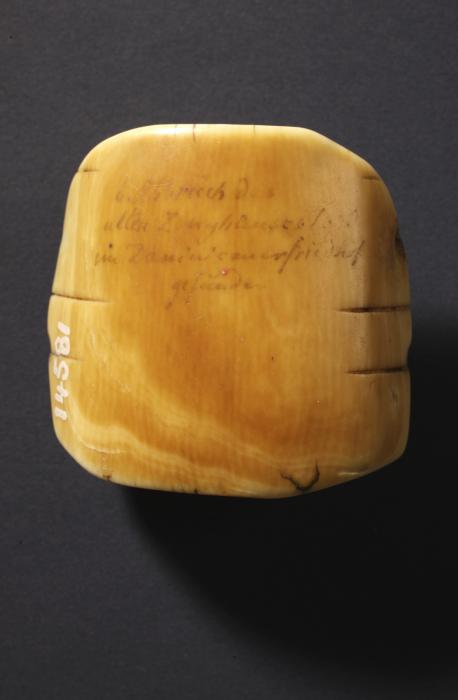 b. Abbruch des
alten Zeughauses
im Dominicanerfriedhof
gefunden
14581